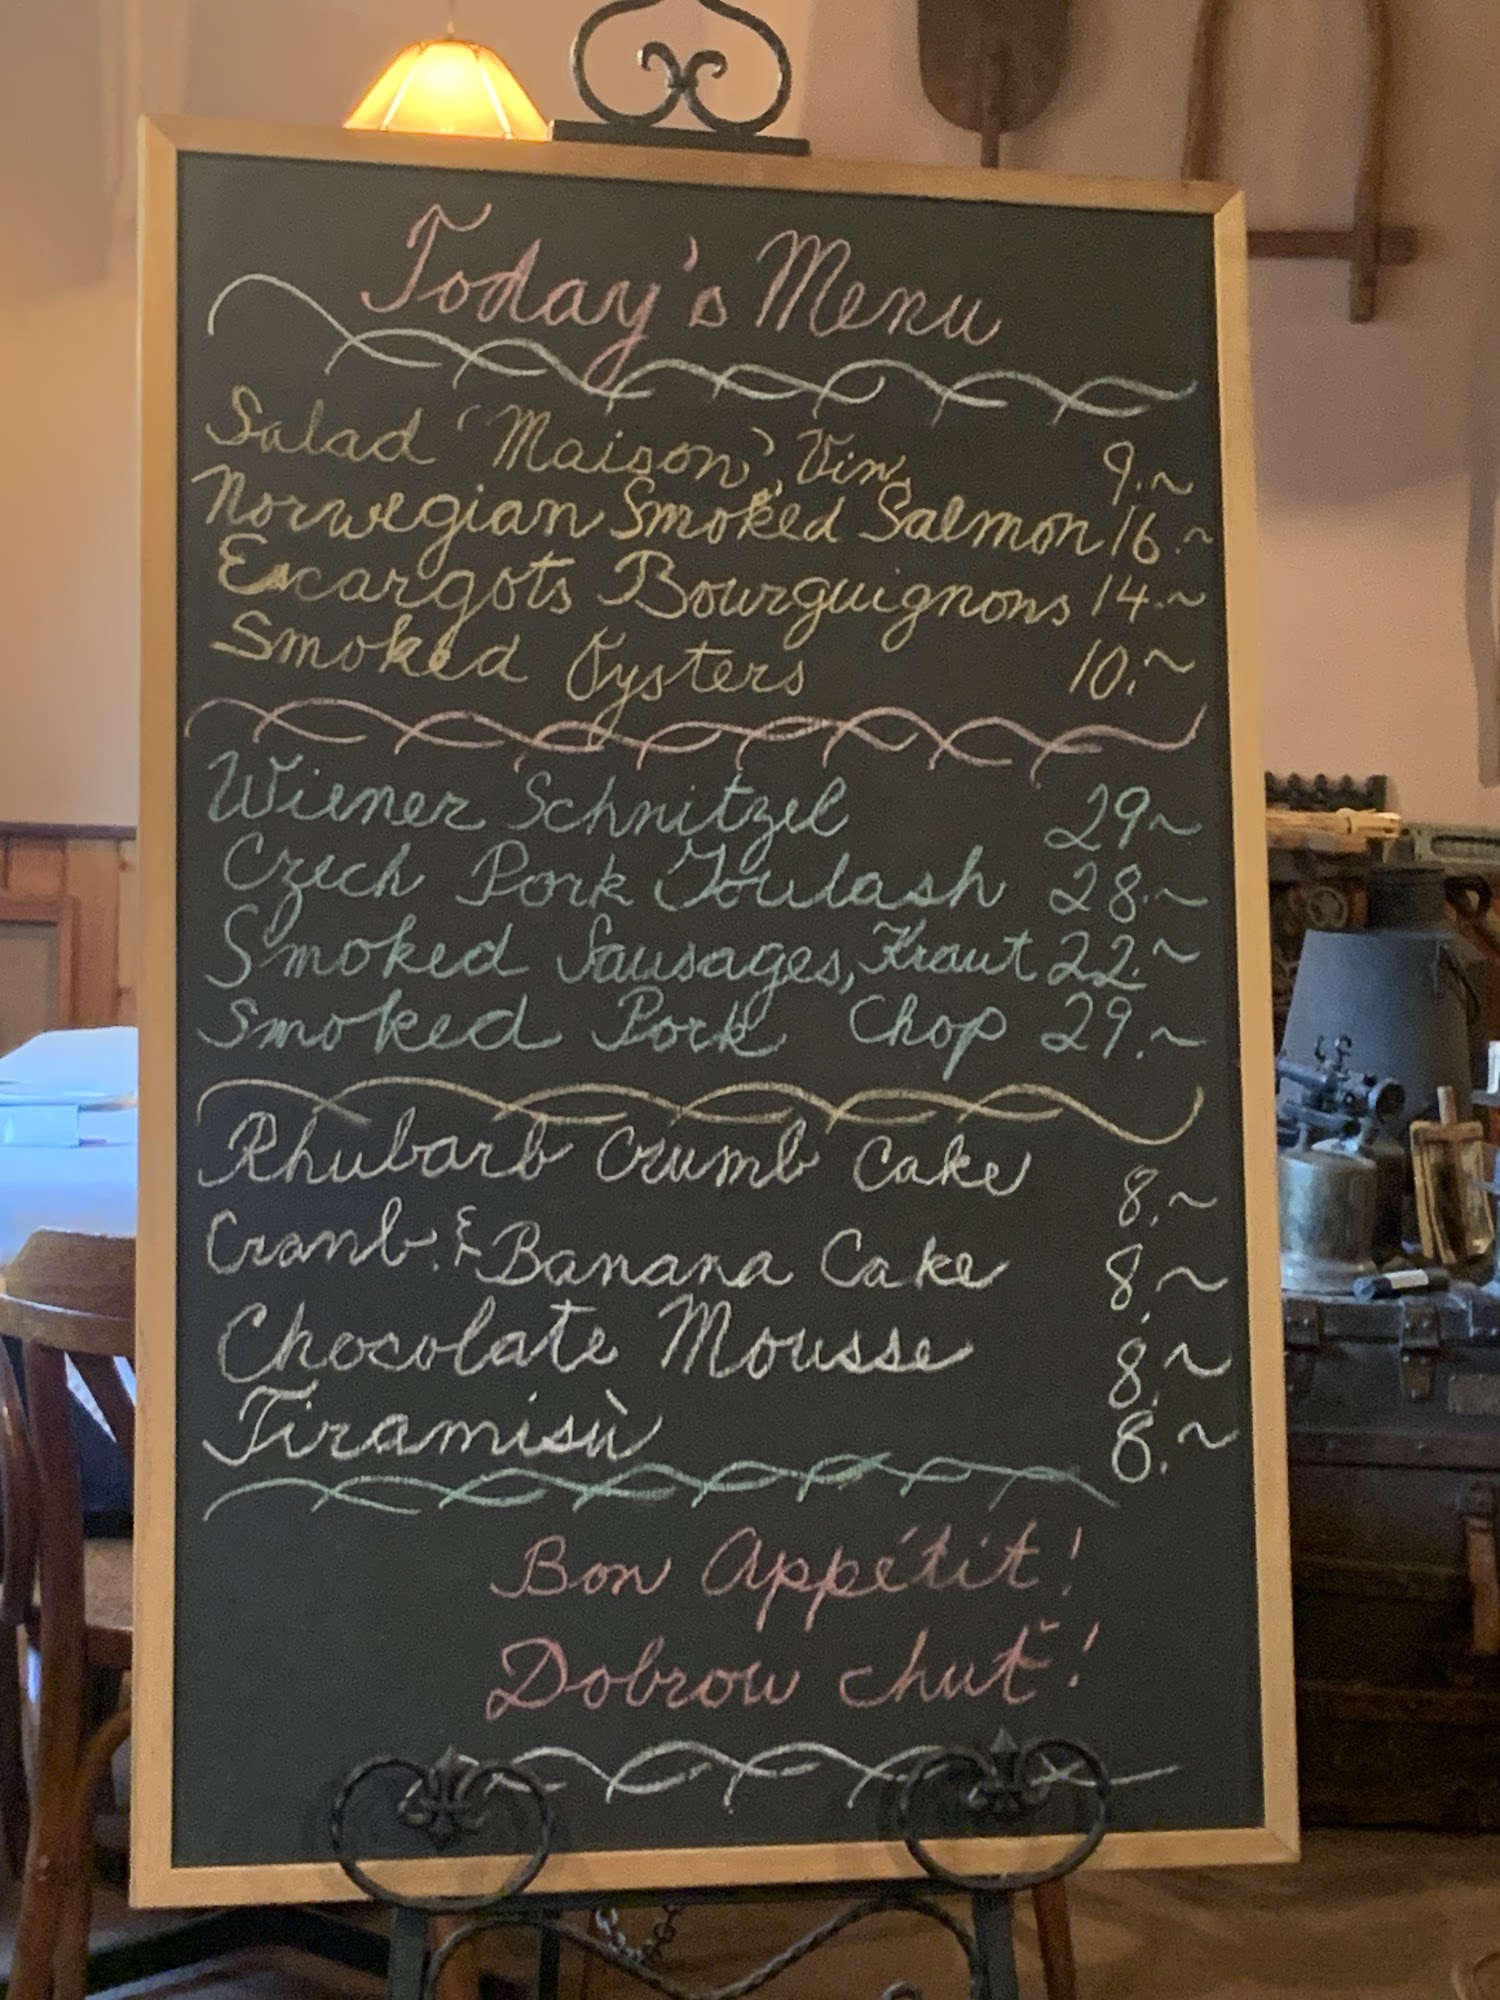 Today's Menu
Salad 'Maison', Vin. 9.~
Norwegian Smoked Salmon 16.~
Escargots Bourguignons 14.~
Smoked Oysters 10.~
Wiener Schnitzel 29~
Czech Pork Goulash 28.~
Smoked Sausages, Kraut 22.~
Smoked Pork Chop 29.~
Rhubarb Crumb Cake 8.~
Cranb. & Banana Cake 8.~
Chocolate Mousse 8.~
Tiramisù 8.~
Bon Appétit!
Dobrow chuť!